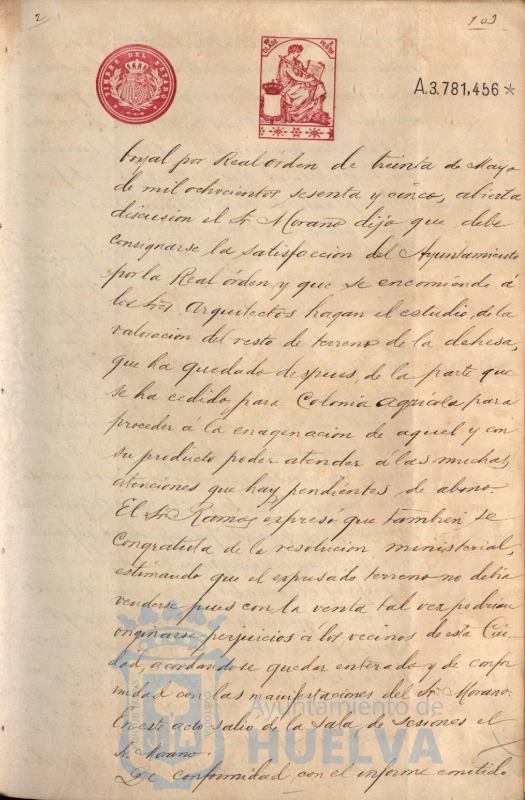 2
103
TIMBRE DEL ESTADO
A.3.781,456*
boyal por Real órden de treinta de Mayo
de mil ochocientos sesenta y cinco, abierta
discusion el Sr. Morano dijo que debe
consignarse la satisfaccion del Ayuntamiento
por la Real órden y que se encomiende á
los tres Arquitectos hagan el estudio, de la
valoracion del resto de terreno de la dehesa,
que ha quedado despues, de la parte que
se ha cedido para Colonia agricola para
proceder á la enaginacion de aquel y con
su producto poder atender á las muchas
atenciones que hay pendientes de abono.
El Sr. Ramos expresó que tambien se
congratula de la resolucion ministerial,
estimando que el espresado terreno no debia
venderse pues con la venta tal vez podrian
originarse perjuicios á los vecinos de esta Ciu-
dad, acordandose quedar enterado y de confor
midad con las manifestaciones del Sr. Morano.
En este acto salio de la Sala de Sesiones el
Sr. Morano.
De conformidad con el informe emitido
Ayuntamiento de
HUELVA